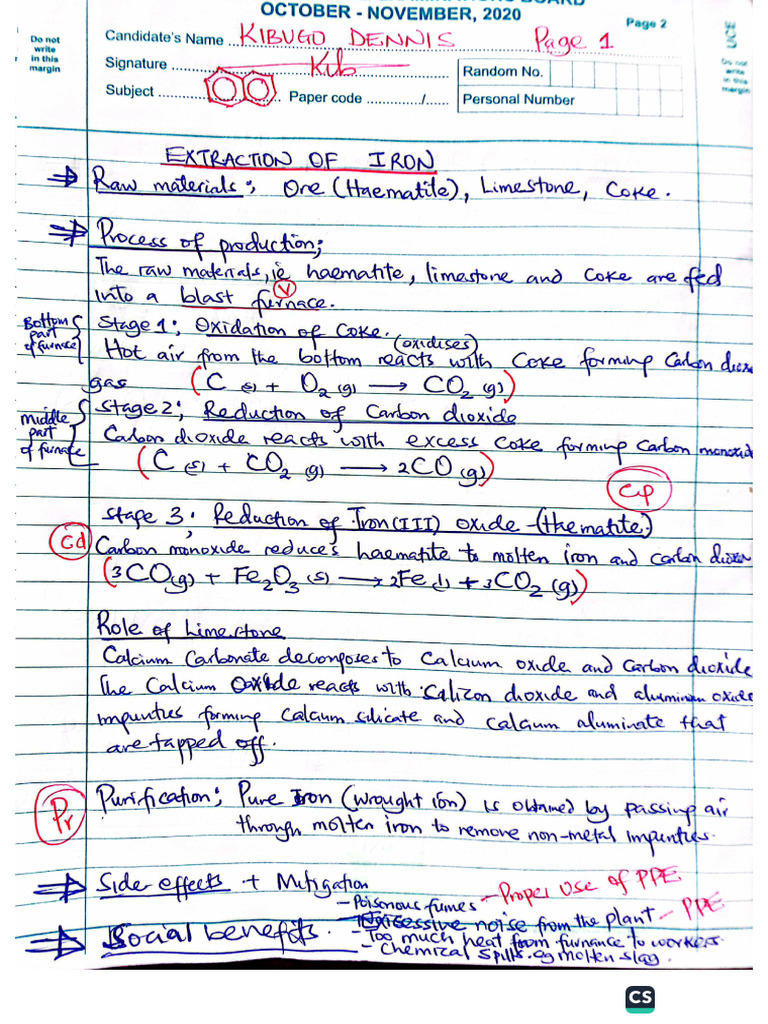 OCTOBER - NOVEMBER, 2020
Page 2
Do not write in this margin
Candidate's Name KIBUGO DENNIS Page 1
UCE
Do not write in this margin
Signature Kib
Random No.
Subject
Paper code ............/......
Personal Number
EXTRACTION OF IRON
⇒ Raw materials; Ore (Haematile), Limestone, Coke.
⇒ Process of production;
The raw materials, ie haematite, limestone and coke are fed
into a blast furnace.
V
Bottom part of furnace
Stage 1; Oxidation of Coke.
(oxidises)
Hot air from the bottom reacts with Coke forming Carbon diox
gas (C (s) + O₂ (g) → CO₂ (g))
middle part of furnace
Stage 2; Reduction of Carbon dioxide
Carbon dioxide reacts with excess coke forming carbon monoxid
(C (s) + CO₂ (g) → 2CO (g))
Cp
Stage 3; Reduction of Iron (III) oxide - (thematite)
Cd
Carbon monoxide reduces haematite to molten iron and carbon diox
(3CO(g) + Fe₂O₃ (s) → 2Fe (l) + 3CO₂ (g))
Role of Limestone
Calcium Carbonate decomposes to Calcium oxide and Carbon dioxide
The Calcium Oxide reacts with silicon dioxide and aluminium oxide
impurities forming calcium silicate and calcium aluminate that
are tapped off.
Pr
Purification; Pure Iron (wrought ion) is obtained by passing air
through molten iron to remove non-metal impurities.
⇒ Side effects + Mitigation
- Poisonous fumes - Proper Use of PPE
Excessive noise from the plant - PPE
⇒ Social benefits.
- Too much heat from furnance to workers.
- Chemical spills. eg molten slag.
CS